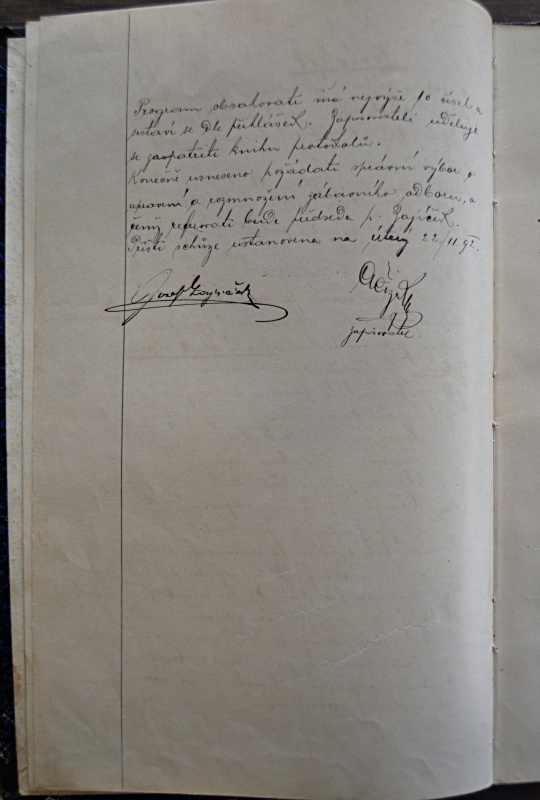 Program obsahovati má nejvýše 10 čísel a
sestaví se dle přihlášek. Zapisovateli uděluje
se zaopatřiti knihu protokolů.
Konečně usneseno požádati správní výbor o
upravení a rozmnožení zábavního odboru, o
čemž referovati bude předseda p. Zajíček.
Příští schůze ustanovena na úterý 22/11 92.
Josef Zajíček
zapisovatel.